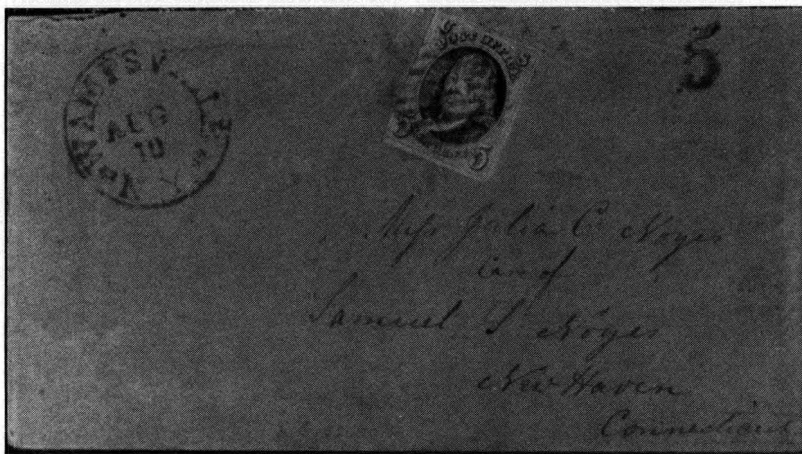 N.Y.
AUG
10
POST OFFICE
5
Miss Julia C. Noyes
care of
Samuel S Noyes
New Haven
Connecticut